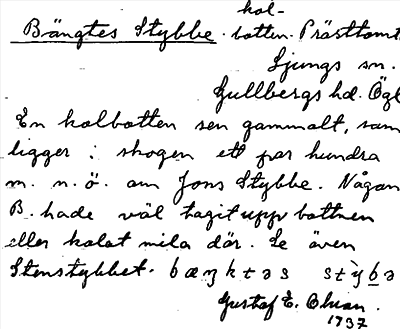 kol-
Bängtes Stybbe. botten. Prästtomt
Ljungs sn.
Gullbergs hd. Ögl
En kolbotten sen gammalt, som
ligger i skogen ett par hundra
m. n. ö. om Jons Stybbe. Någon
B. hade väl tagit upp bottnen
eller kolat mila där. Se även
Stenstybbet. bæŋktəs
Gustaf E.
1937